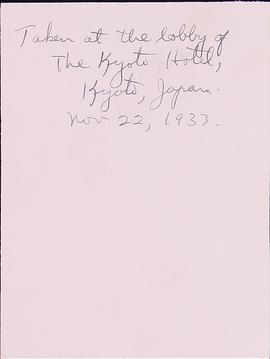 Taken at the lobby of
The Kyoto Hotel,
Kyoto, Japan.
Nov. 22, 1933.